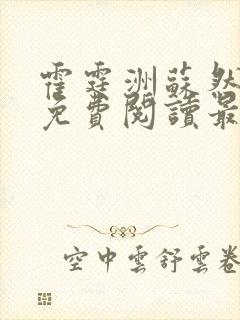 霍霆洲蘇然
免費閱讀最
空中雲舒雲卷